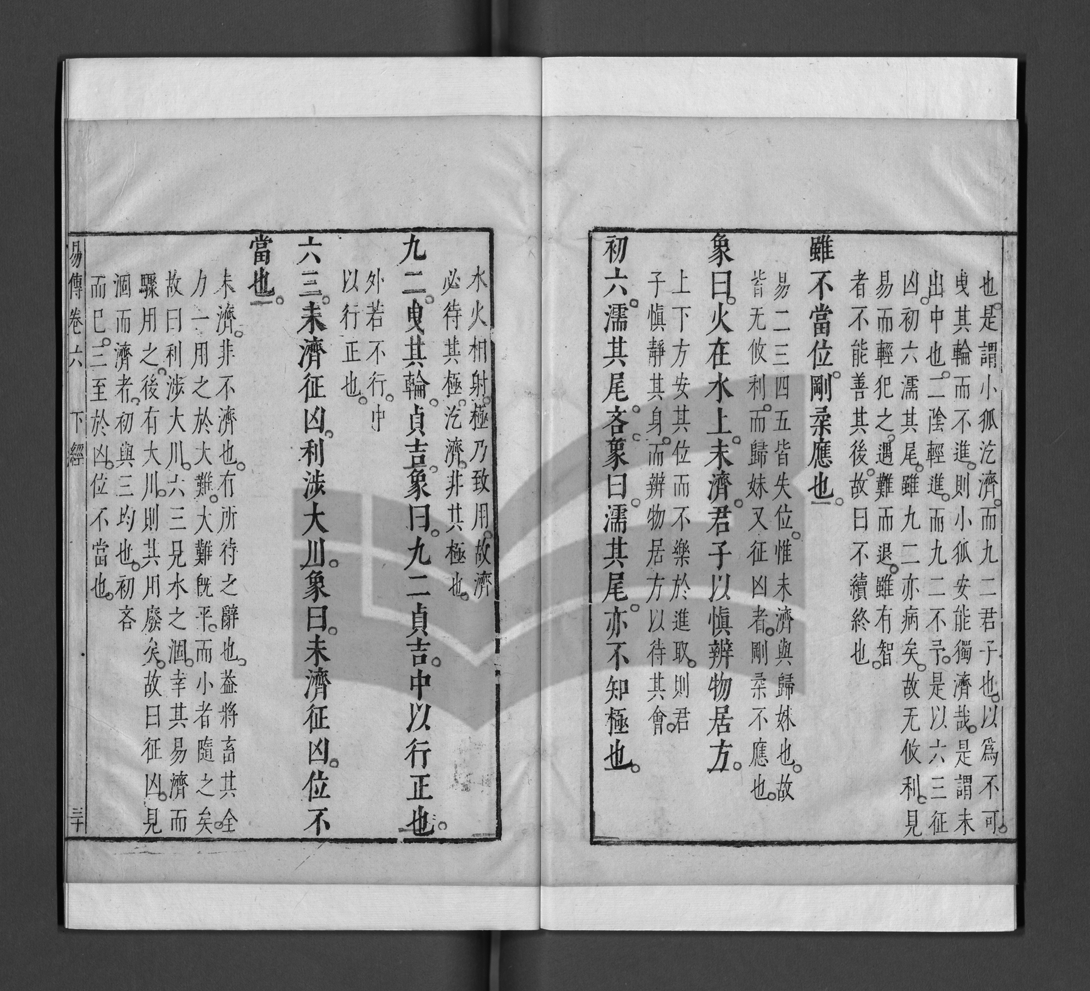 也。是謂小狐汔濟。而九二君子也。以爲不可。
曳其輪而不進。則小狐安能獨濟哉。是謂未
出中也。二隂輕進。而九二不予。是以六三征
凶。初六濡其尾。雖九二亦病矣。故无攸利。見
易而輕犯之。遇難而退。雖有智
者不能善其後。故曰不續終也。
雖不當位。剛柔應也。
易二三四五皆失位。惟未濟與歸妹也。故
皆无攸利。而歸妹又征凶者。剛柔不應也。
象曰。火在水上。未濟。君子以愼辨物居方。
上下方安其位而不樂於進取。則君
子愼靜其身。而辨物居方以待其會。
初六。濡其尾。吝。象曰。濡其尾。亦不知極也。
水火相射。極乃致用。故濟
必待其極。汔濟。非其極也。
九二。曳其輪。貞吉。象曰。九二貞吉。中以行正也。
外若不行。中
以行正也。
六三。未濟征凶。利涉大川。象曰。未濟征凶。位不
當也。
未濟。非不濟也。有所待之辭也。蓋將畜其全
力一用之於大難。大難旣平。而小者隨之矣。
故曰利涉大川。六三見水之涸。幸其易濟而
驟用之。後有大川。則其用廢矣。故曰征凶。見
涸而濟者。初與三均也。初吝
而已。三至於凶。位不當也。
易傳卷六 下經 三十